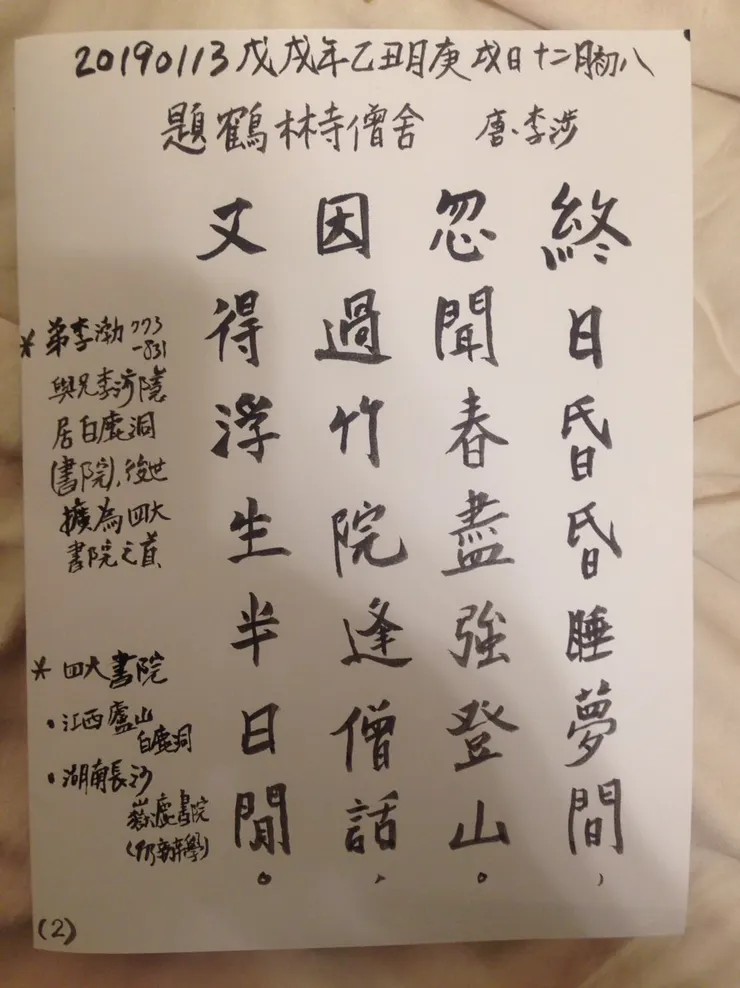 20190113戊戌年乙丑月庚戌日十二月初八
題鶴林寺僧舍 唐·李涉
終日昏昏睡夢間，
忽聞春盡強登山。
因過竹院逢僧話，
又得浮生半日閒。
* 弟李渤773
-831
與兄李涉隱
居白鹿洞
(書院)，後世
擴為四大
書院之首
* 四大書院
•江西廬山
白鹿洞
•湖南長沙
嶽麓書院
(仍辦學)
(2)